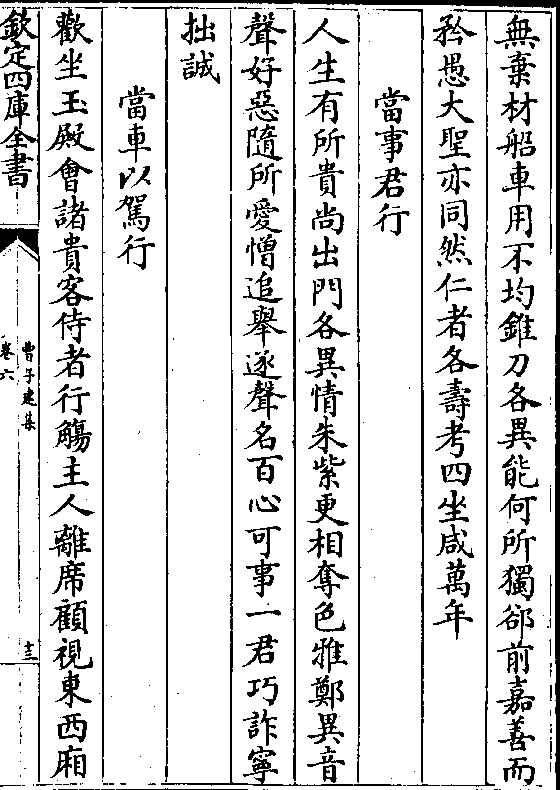 無棄材船車用不均錐刀各異能何所獨郤前嘉善而
矜愚大聖亦同然仁者各壽考四坐咸萬年
當事君行
人生有所貴尚出門各異情朱紫更相奪色雅鄭異音
聲好惡隨所愛憎追舉逐聲名百心可事一君巧詐寧
拙誠
當車以駕行
歡坐玉殿會諸貴客侍者行觴主人離席顧視東西廂
欽定四庫全書
曹子建集
卷六
十三